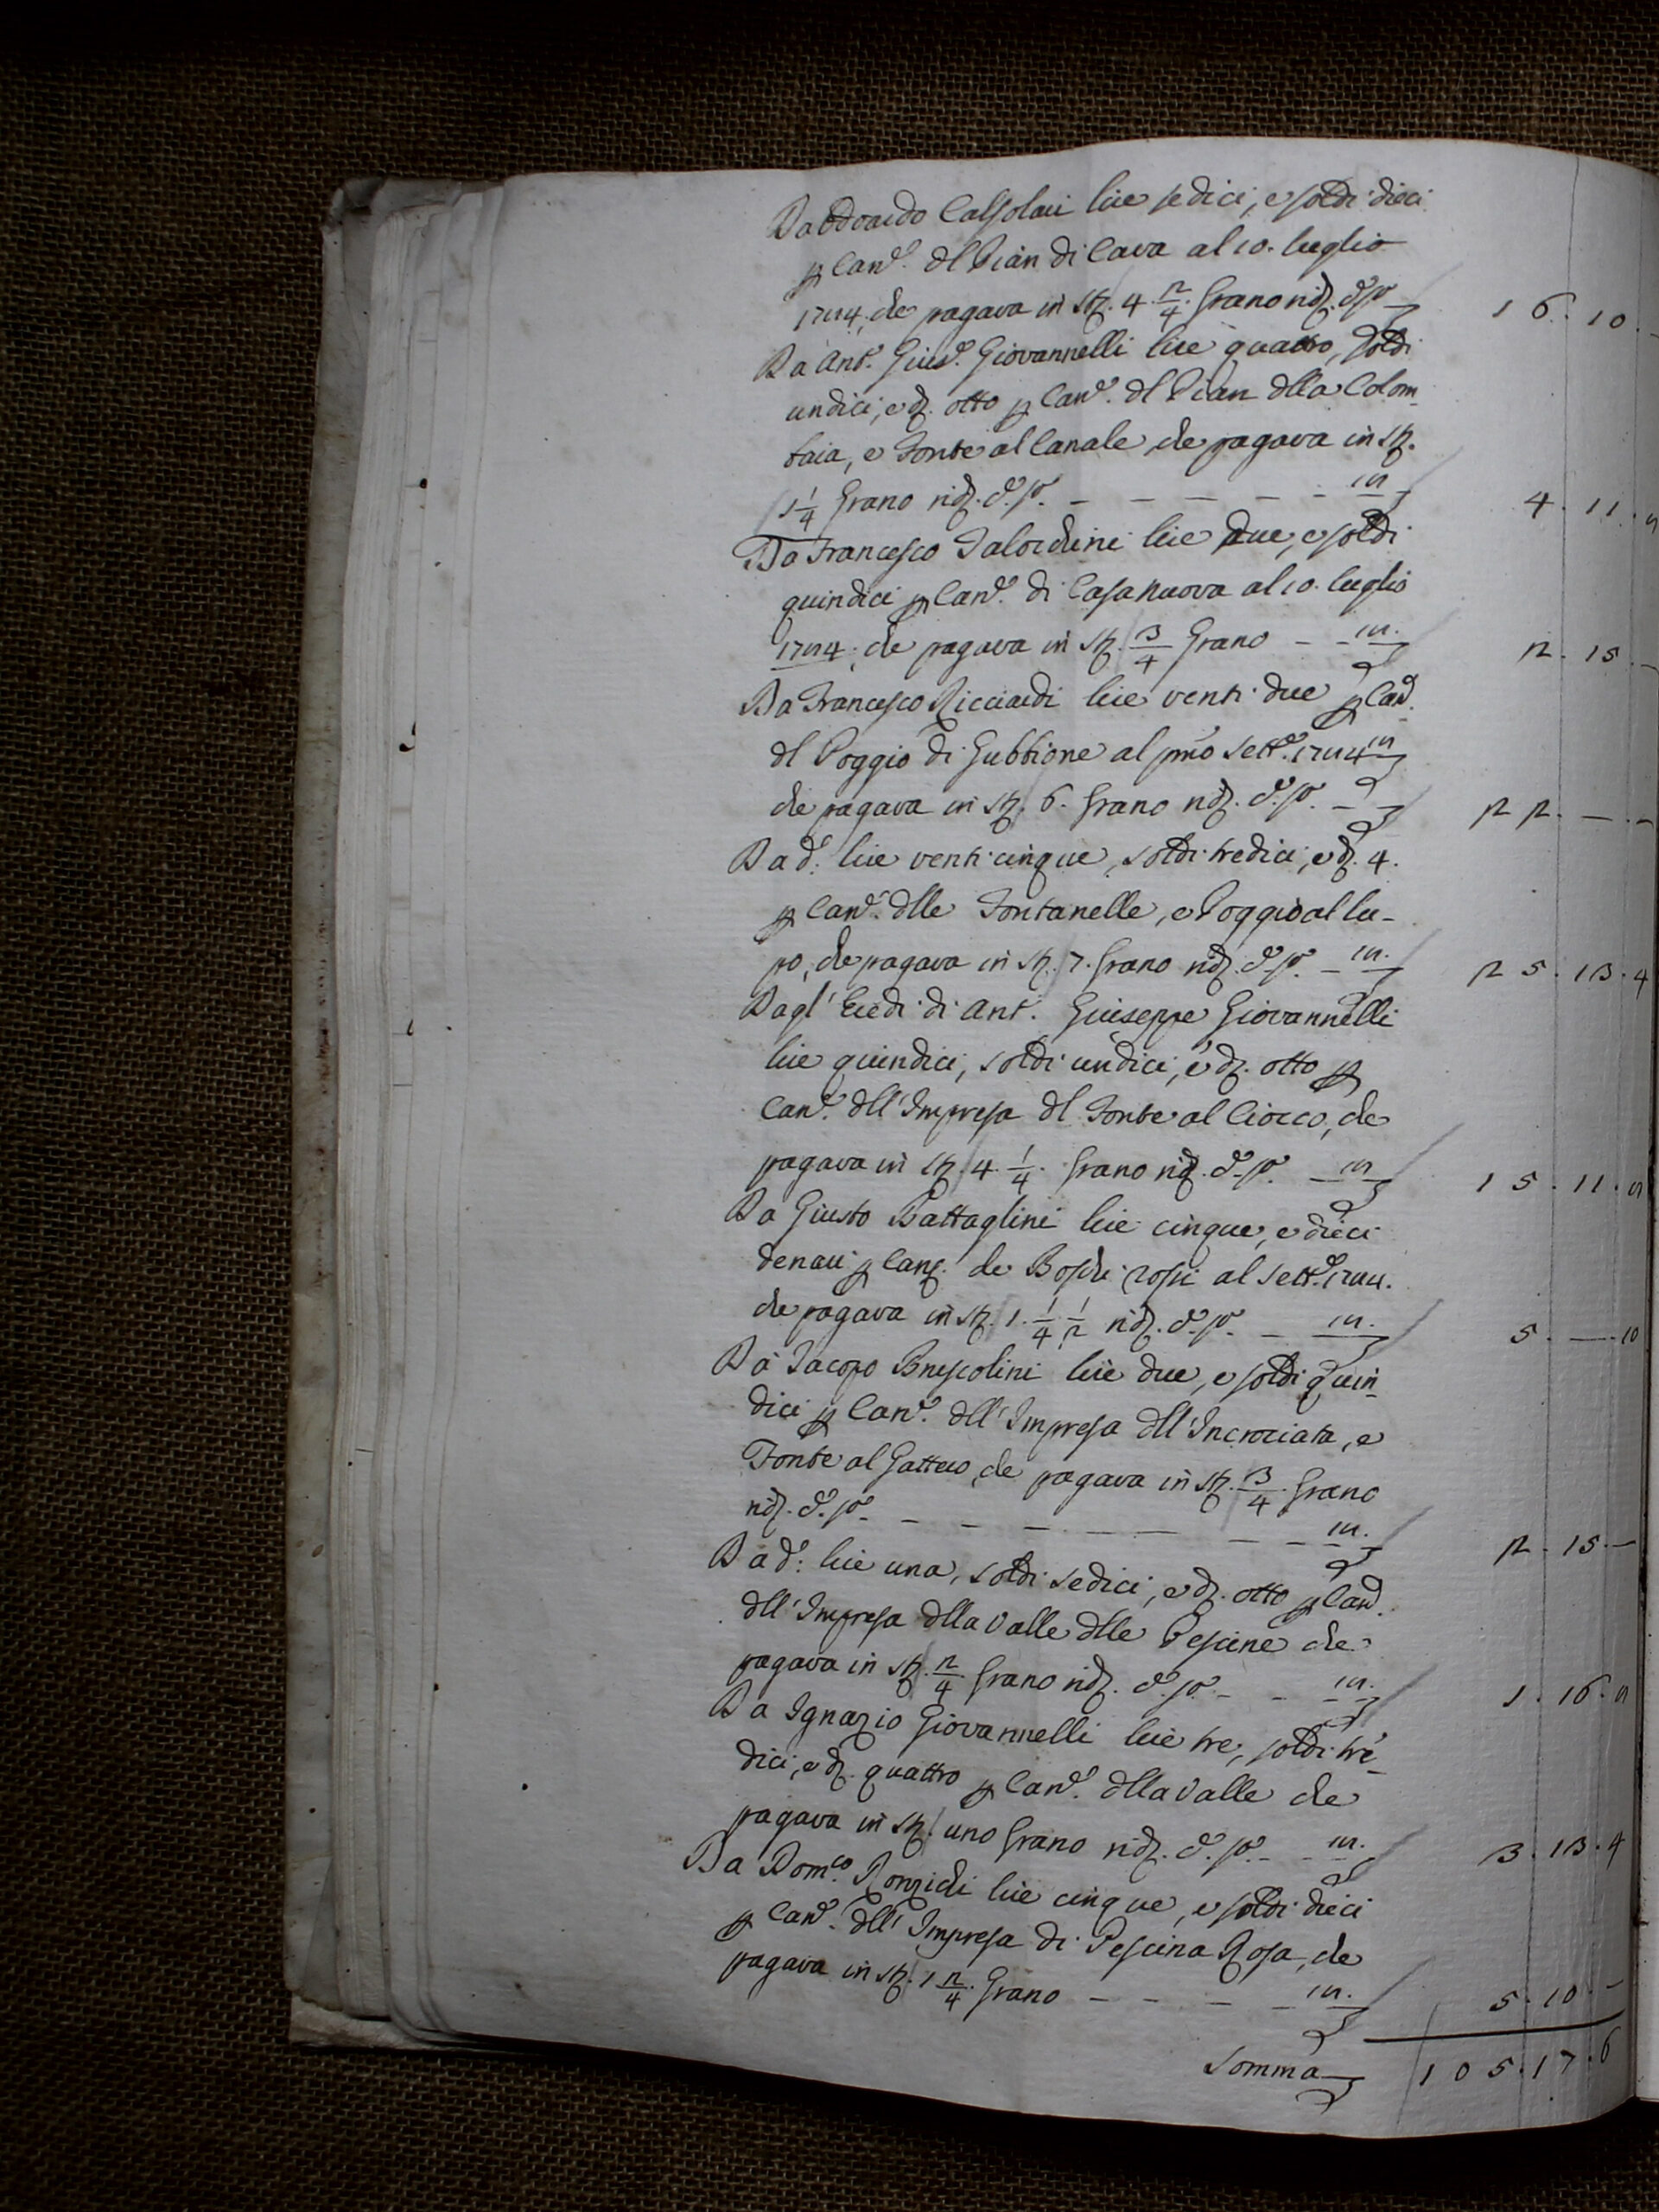 Da Odoardo Calsolari lire sedici, e soldi dieci
p Can.e dl Pian di Cava al 10. luglio
1784, che pagava in st. 4. 2/4. Grano rid. d.o p.o 16. 10. -
Da Ant.o Gius.e Giovannelli lire quattro, soldi
undici, e d. otto p Can.e dl Pian dlla Colom-
baia, e Fonte al Canale che pagava in st.
1 1/4 Grano rid. d.o p.o - - - - - 4. 11. 8
Da Francesco Talorchini lire due, e soldi
quindici p Can.e di Casanuova al 10. luglio
1784. che pagava in st. 3/4 Grano - - 2. 15. -
Da Francesco Ricciardi lire venti due p Can.e
dl Poggio di Gubbione al pmo Sett.e 1784
che pagava in st. 6. Grano rid. d.o p.o - 22. - -
Da d.o lire venticinque, soldi tredici, e d. 4.
p Can.e dlle Fontanelle, e Poggio al lu-
po, che pagava in st. 7. Grano rid. d.o p.o - 25. 13. 4
Dagl' Eredi di Ant.o Giuseppe Giovannelli
lire quindici, soldi undici, e d. otto p
Can.e dll' Impresa dl Fonte al Ciocco, che
pagava in st. 4. 1/4. Grano rid. d.o p.o - 15. 11. 8
Da Giusto Battaglini lire cinque, e dieci
denari p Can.e de Boschi rossi al Sett.e 1784.
che pagava in st. 1. 1/4. 1/2 rid. d.o p.o - 5. - 10
Da Jacopo Brescolini lire due, e soldi quin-
dici p Can.e dll' Impresa dll' Incrociata, e
Fonte al Gattero, che pagava in st. 3/4. Grano
rid. d.o p.o - - - - - - - 2. 15. -
Da d.o lire una, soldi sedici, e d. otto p Can.e
dll' Impresa dlla Valle dlle Pescine che
pagava in st. 2/4. Grano rid. d.o p.o - - 1. 16. 8
Da Ignazio Giovannelli lire tre, soldi tre-
dici, e d. quattro p Can.e dlla Valle che
pagava in st. uno Grano rid. d.o p.o - - 3. 13. 4
Da Dom.co Ronzichi lire cinque, e soldi dieci
p Can.e dll' Impresa di Pescina Rosa, che
pagava in st. 1 2/4. Grano - - - - 5. 10. -
Somma 105. 17. 6